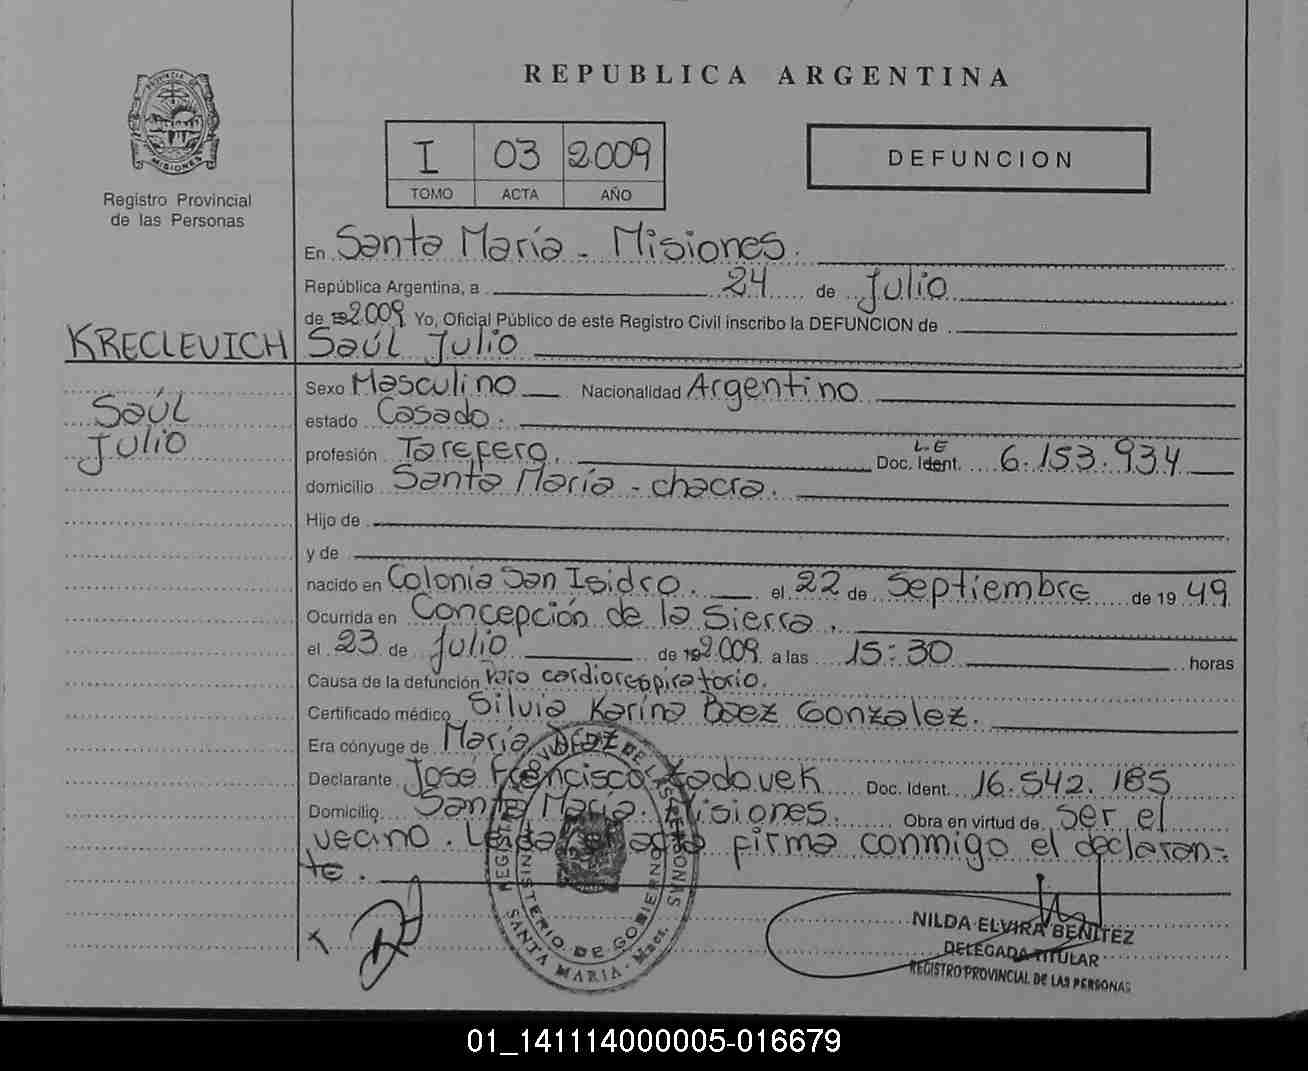 REPUBLICA ARGENTINA
PROVINCIA DE MISIONES
Registro Provincial
de las Personas
I 03 2009
TOMO ACTA AÑO
DEFUNCION
En Santa María - Misiones.
República Argentina, a 24 de Julio
de 192.009 Yo, Oficial Público de este Registro Civil inscribo la DEFUNCION de
KRECLEVICH Saúl Julio
Saúl
Julio
Sexo Masculino Nacionalidad Argentino
estado Casado.
profesión Tarefero. Doc. Ident. L.E 6.153.934
domicilio Santa María - chacra.
Hijo de
y de
nacido en Colonia San Isidro. el 22 de Septiembre de 19 49
Ocurrida en Concepción de la Sierra.
el 23 de Julio de 192.009. a las 15:30 horas
Causa de la defunción Paro cardiorespiratorio.
Certificado médico Silvia Karina Baez Gonzalez.
Era cónyuge de María Diaz
Declarante José Francisco Doc. Ident. 16.542.185
Domicilio Santa María. Misiones. Obra en virtud de ser el
vecino. Leida el acta firma conmigo el declaran-
te.
REGISTRO PROVINCIAL DE LAS PERSONAS
MINISTERIO DE GOBIERNO
SANTA MARIA - Mnes.
NILDA ELVIRA BENITEZ
DELEGADA TITULAR
REGISTRO PROVINCIAL DE LAS PERSONAS
01_141114000005-016679